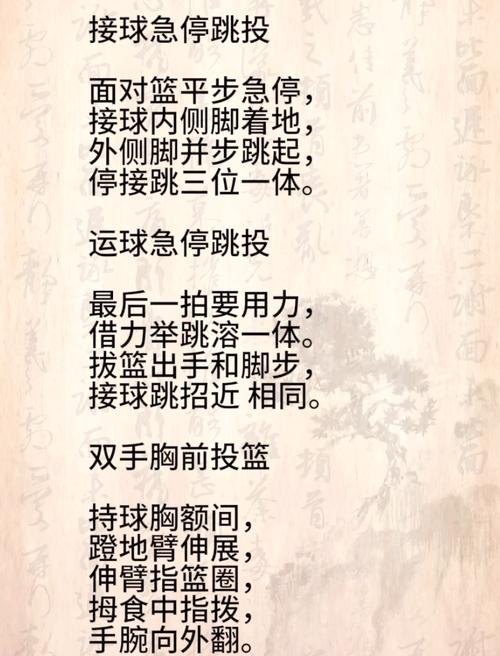 接球急停跳投
面对篮平步急停，
接球内侧脚着地，
外侧脚并步跳起，
停接跳三位一体。
运球急停跳投
最后一拍要用力，
借力举跳溶一体。
拔篮出手和脚步，
接球跳招近 相同。
双手胸前投篮
持球胸额间，
蹬地臂伸展，
伸臂指篮圈，
拇食中指拨，
手腕向外翻。